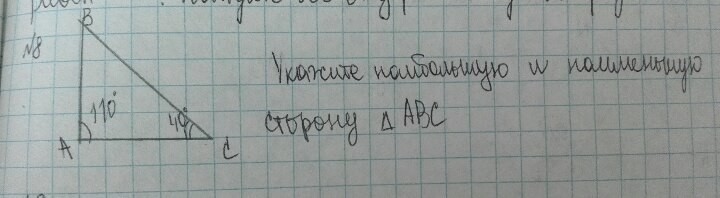 №8
B
Укажите наибольшую и наименьшую
110°
40°
сторону △ ABC
A
C